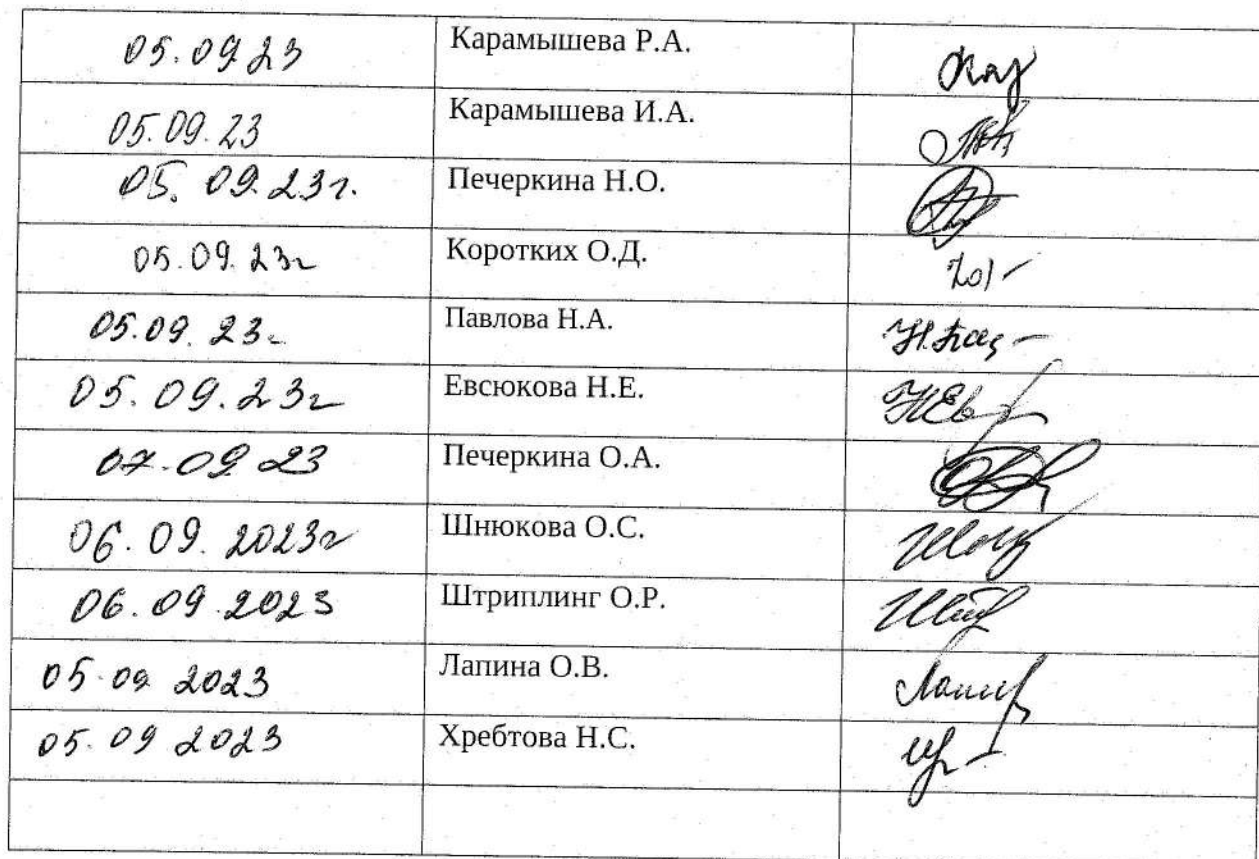 05.09.23 Карамышева Р.А. Кар
05.09.23 Карамышева И.А.
05.09.23г. Печеркина Н.О.
05.09.23г Коротких О.Д.
05.09.23г Павлова Н.А. Н.Пав
05.09.23г Евсюкова Н.Е. НЕв
07.09.23 Печеркина О.А.
06.09.2023г Шнюкова О.С.
06.09.2023 Штриплинг О.Р.
05.09 2023 Лапина О.В.
05.09 2023 Хребтова Н.С.